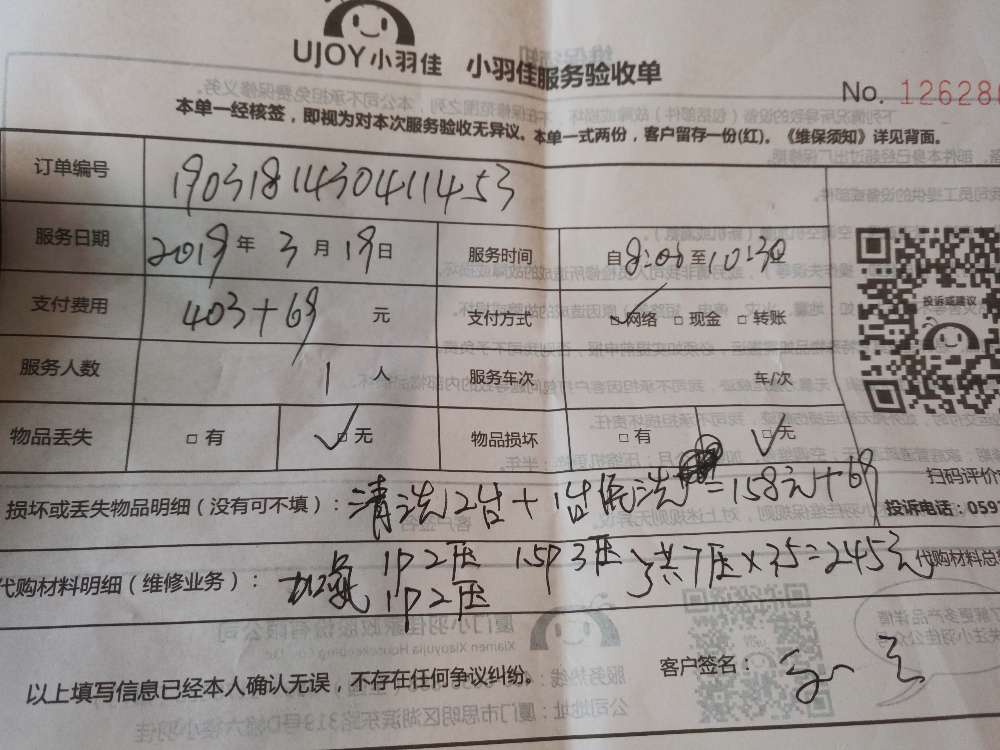 UJOY小羽佳 小羽佳服务验收单
No. 126286
本单一经核签，即视为对本次服务验收无异议。本单一式两份，客户留存一份(红)。《维保须知》详见背面。
订单编号 1903181430411453
服务日期 2019年3月19日 服务时间 自8:00至10:30
支付费用 403+69 元 支付方式 ☑网络 □现金 □转账
服务人数 1 人 服务车次 车/次
投诉或建议
物品丢失 □有 ☑无 物品损坏 □有 ☑无
扫码评价
损坏或丢失物品明细（没有可不填）：清洗2台+1台 洗=158元+69
投诉电话：059
代购材料明细（维修业务）：加氟 1P2压 1.5P3压 共7压×35=245元 代购材料总
1P2压
客户签名：
以上填写信息已经本人确认无误，不存在任何争议纠纷。